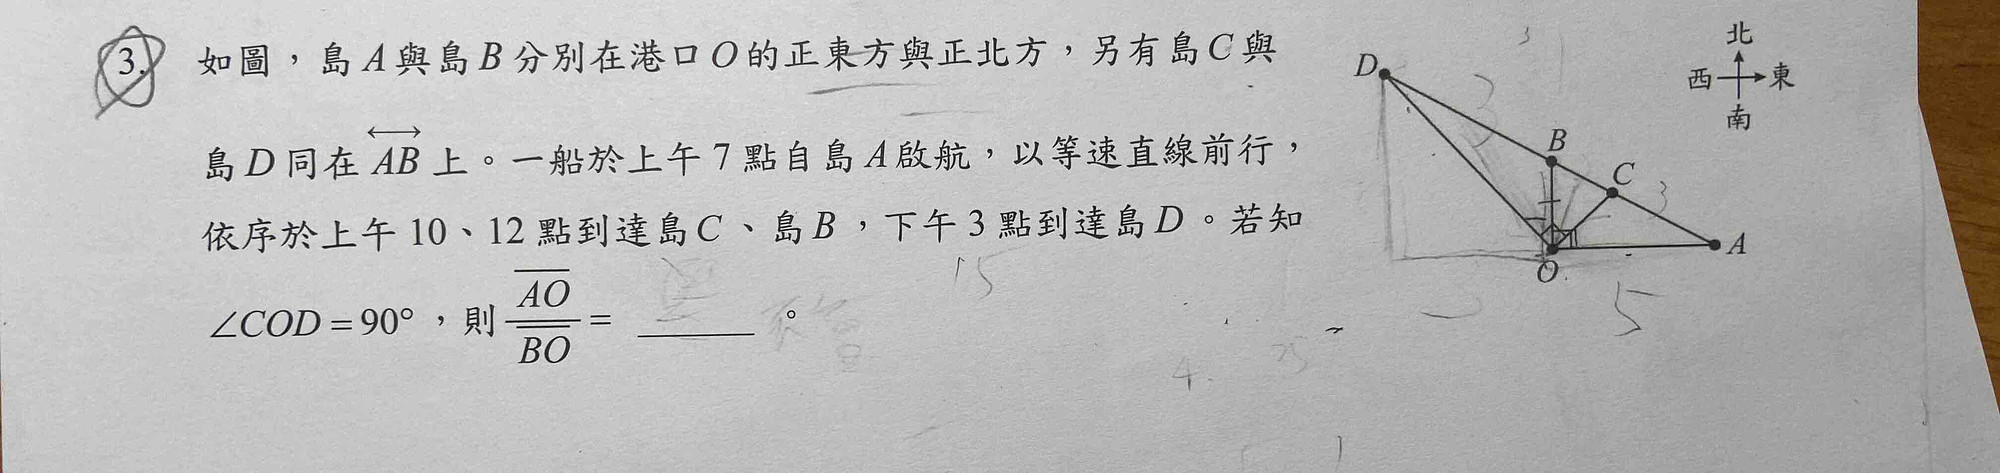 3. 如圖，島A與島B分別在港口O的正東方與正北方，另有島C與
島D同在AB上。一船於上午7點自島A啟航，以等速直線前行，
依序於上午10、12點到達島C、島B，下午3點到達島D。若知
∠COD=90°，則 AO/BO = ______。
D
B
C
O
A
北
西
東
南
3
3
3
15
5
4.
25